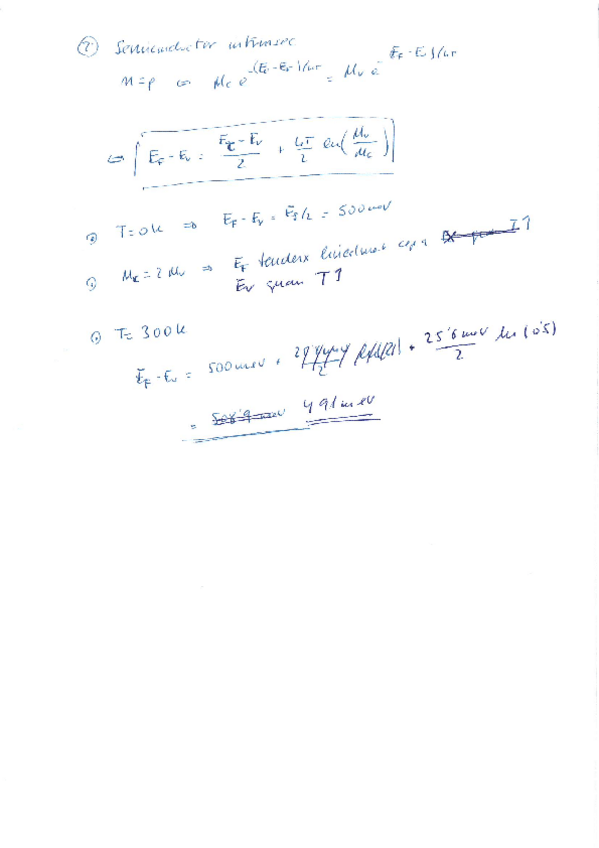 ② Semiconductor intrínsec
n = p ⇔ N_c e^{-(E_c - E_F)/kT} = N_v e^{-(E_F - E_v)/kT}
⇔ E_F - E_v = (E_c - E_v)/2 + kT/2 ln(N_v/N_c)
T = 0K ⇒ E_F - E_v = E_g/2 = 500 meV
N_c = 2 N_v ⇒ E_F tendeix linealment cap a
E_v quan T↑
T = 300K
E_F - E_v = 500 meV + 25'6 meV/2 ln(0'5)
= 491 meV